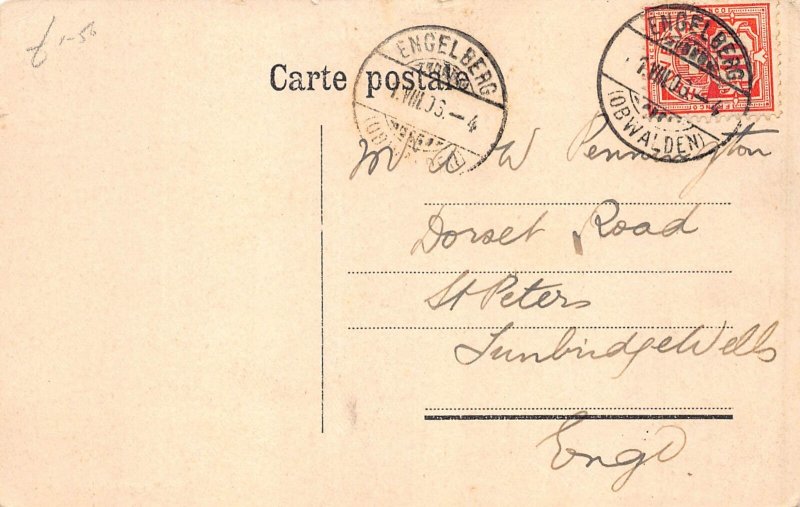 £1-50
Carte postale
ENGELBERG
1.VIII.06.-4
ENGELBERG
1.VIII.06.-4
(OBWALDEN)
Mr W Pennington
Dorset Road
St Peters
Tunbridge Wells
Engd